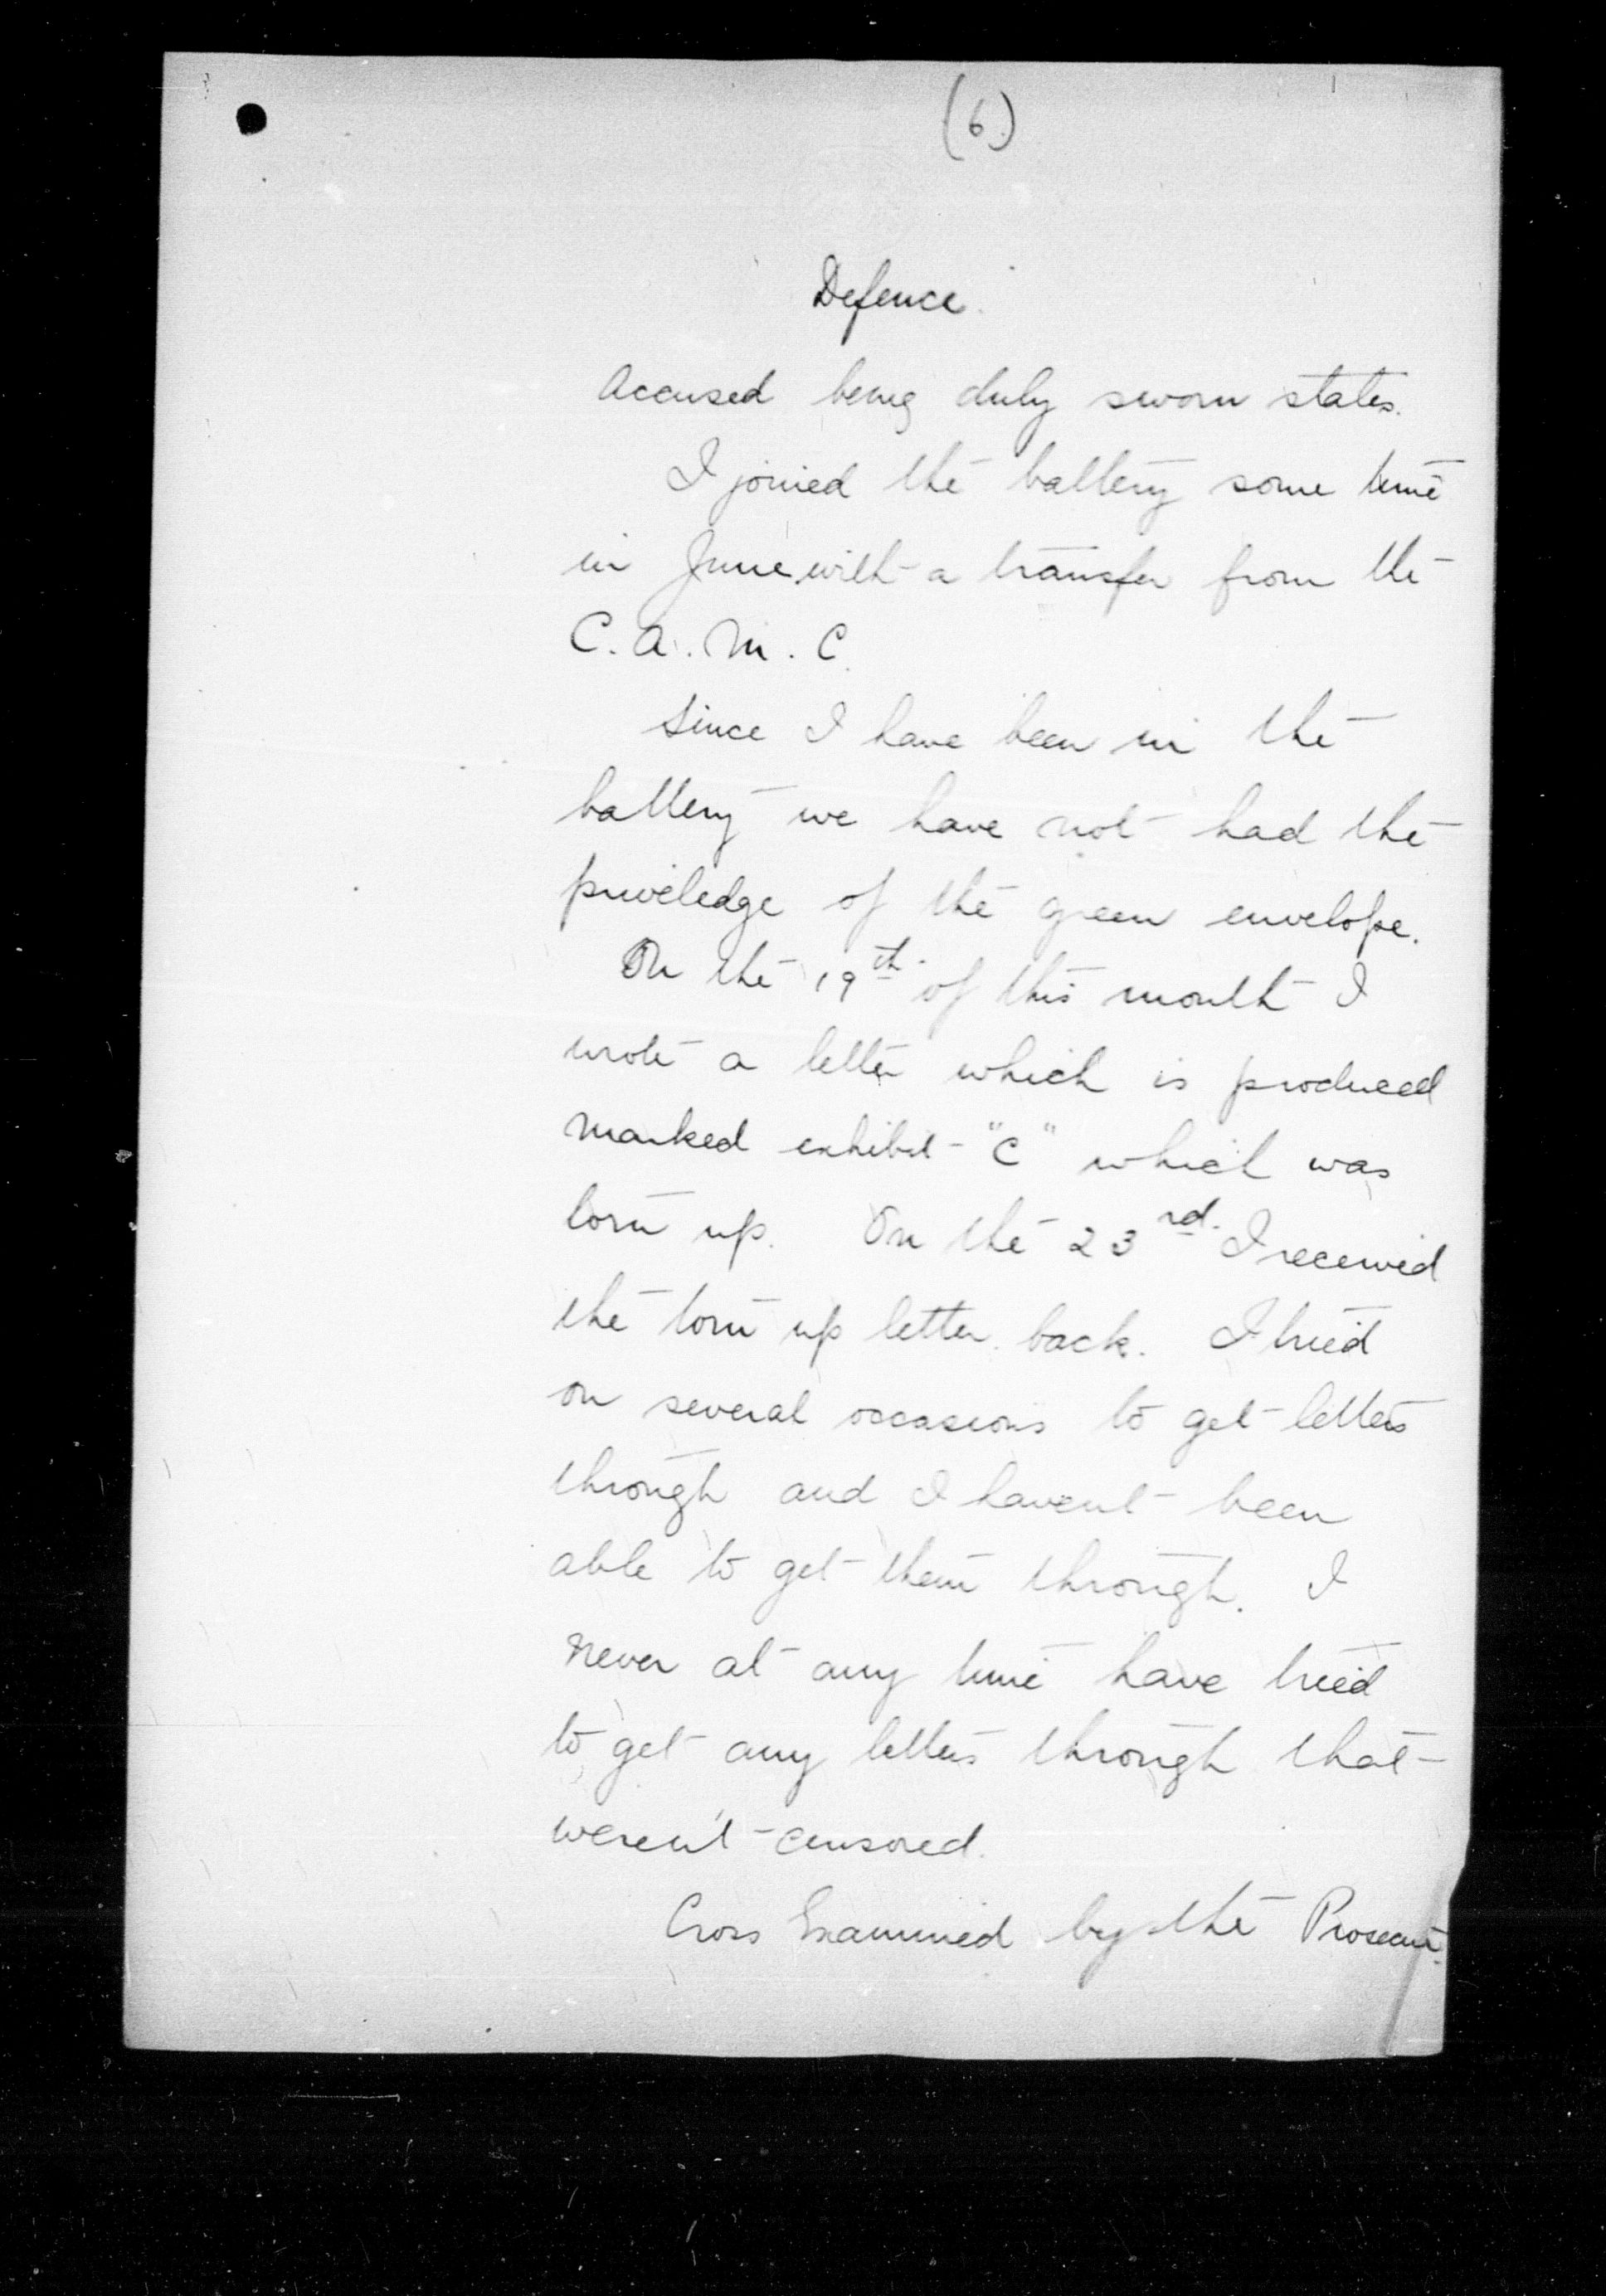 (6.)
Defence.
Accused being duly sworn states.
I joined the battery some time
in June with a transfer from the
C.A.M.C.
Since I have been in the
battery we have not had the
priveledge of the green envelope.
On the 19th. of this month I
wrote a letter which is produced
marked exhibit "C" which was
torn up. On the 23rd. I received
the torn up letter back. I tried
on several occasions to get letters
through and I havent been
able to get them through. I
never at any time have tried
to get any letters through that
weren't censored.
Cross Examined by the